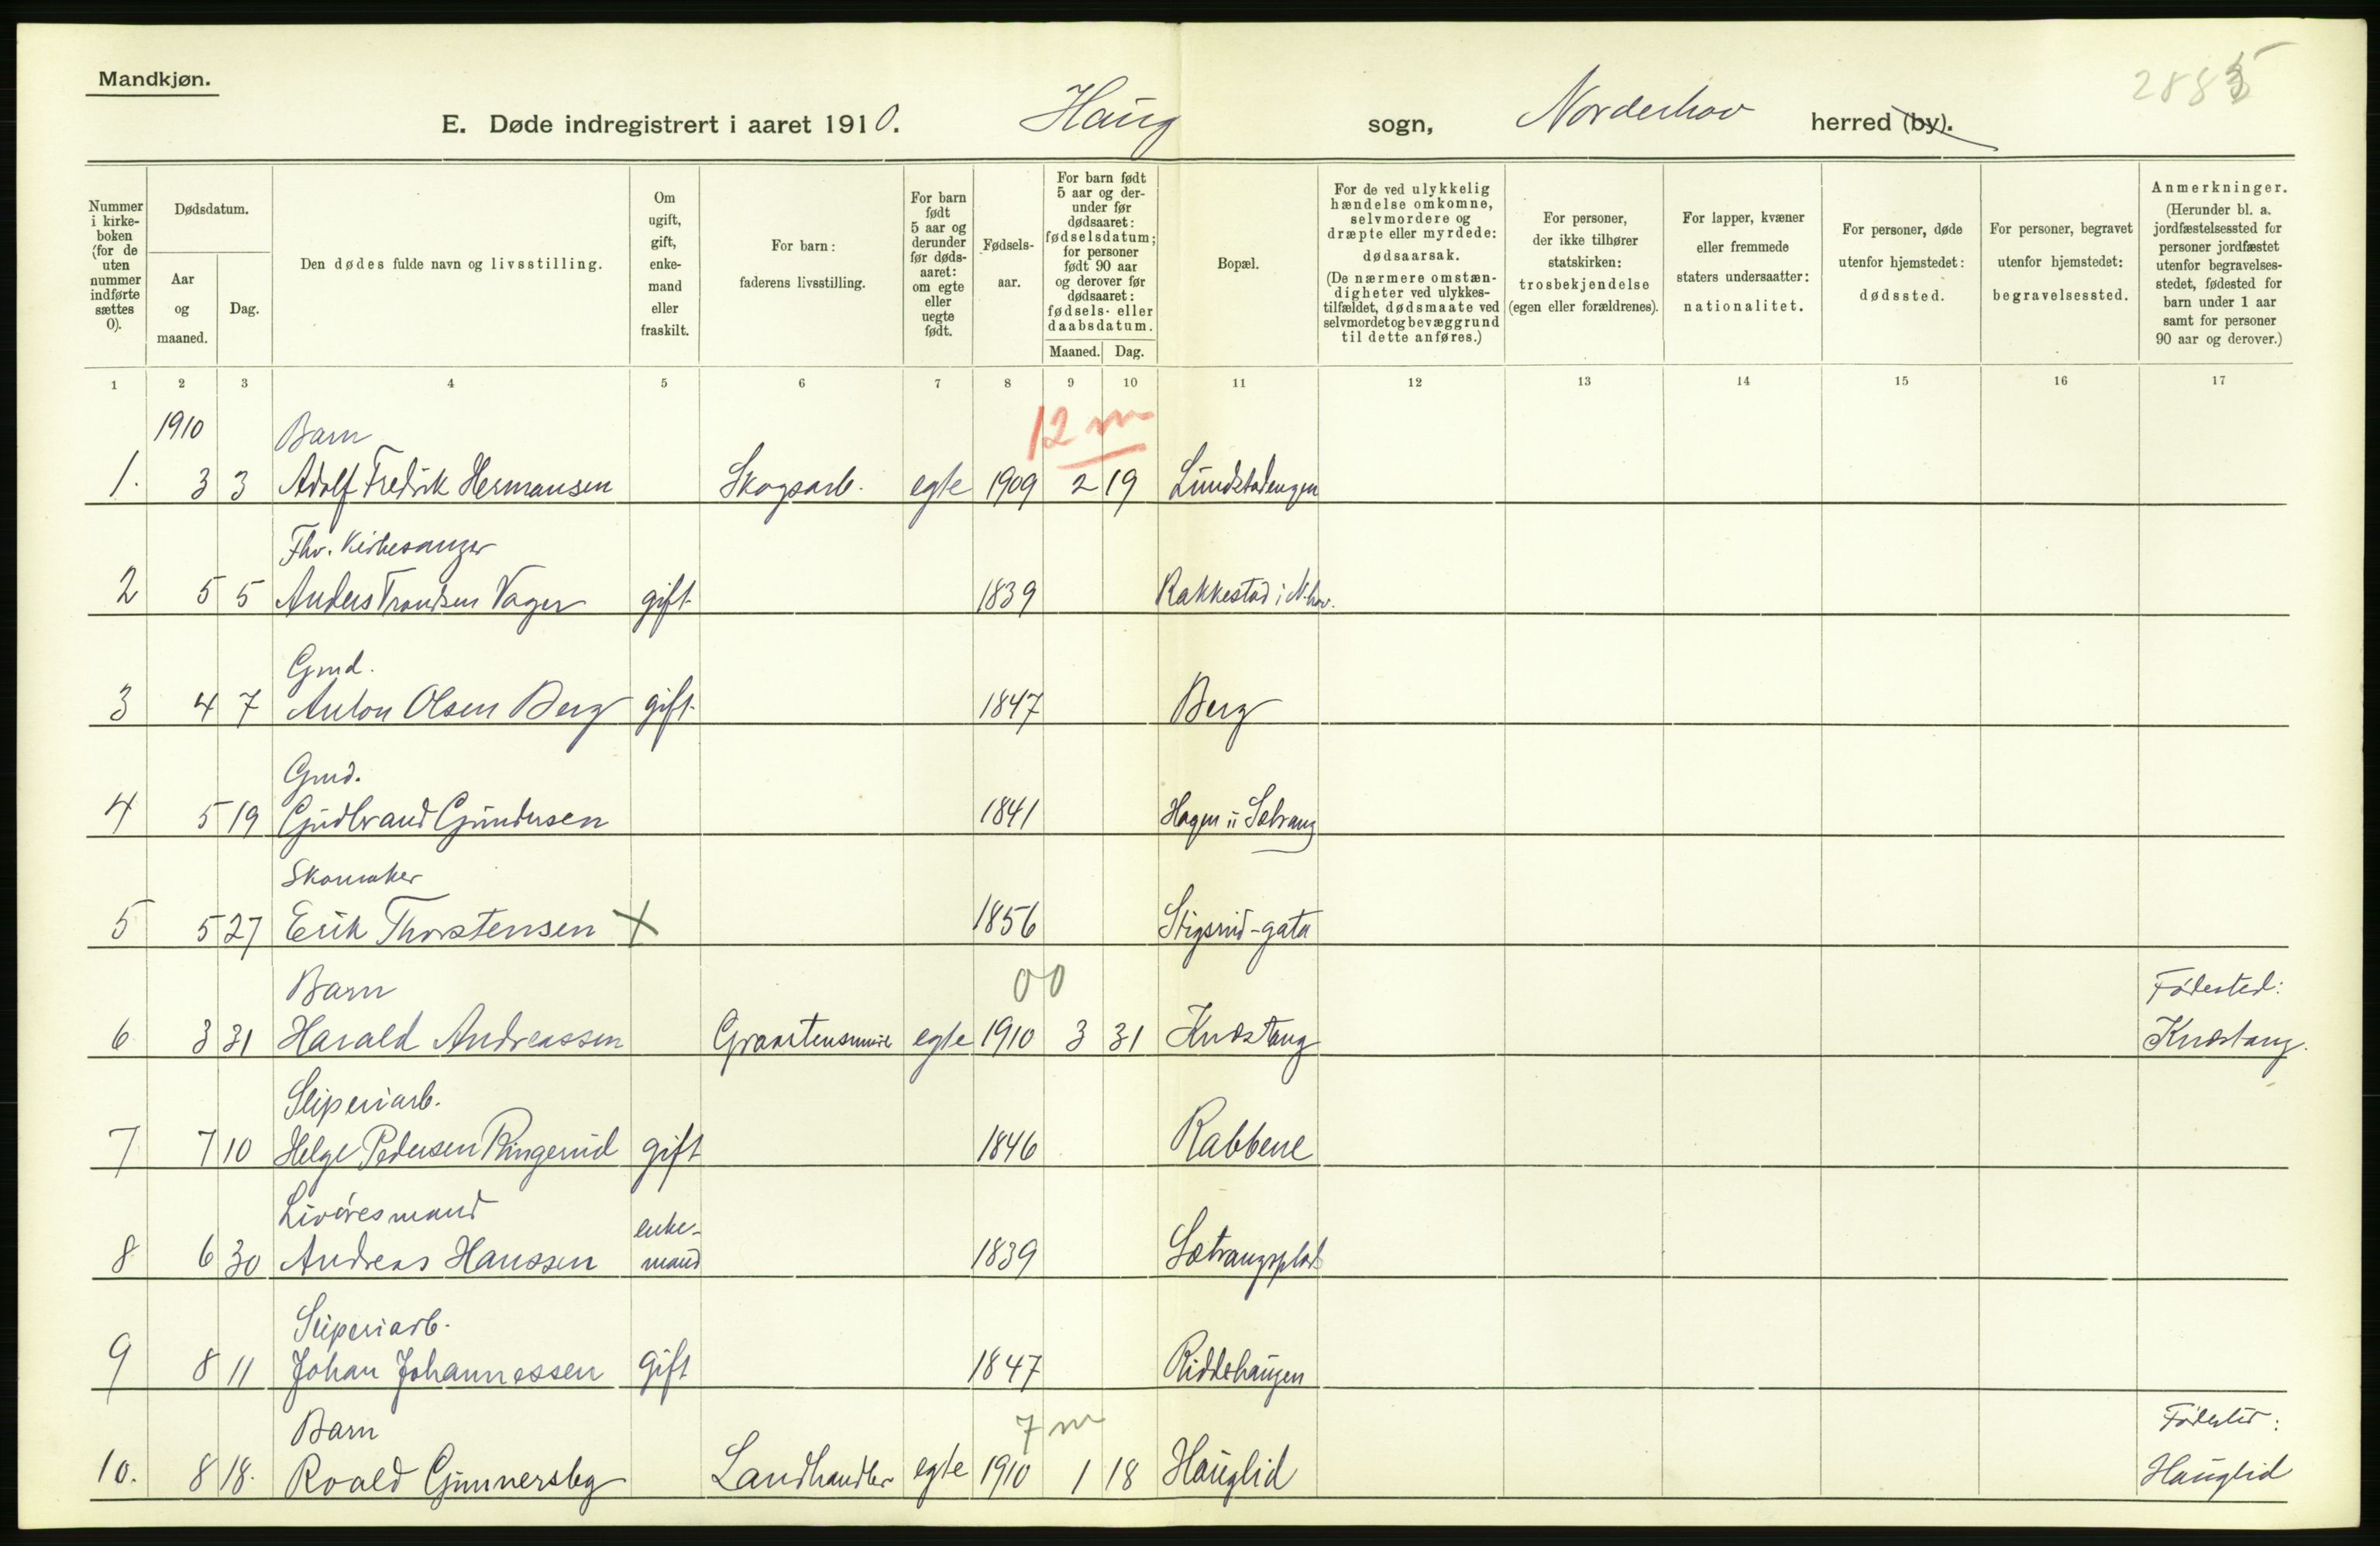 Mandkjøn.
288
E. Døde indregistrert i aaret 1910. Haug sogn, Norderhov herred (by).
Nummer i kirke-boken (for de uten nummer indførte sættes 0).
Dødsdatum.
Aar og maaned.
Dag.
Den dødes fulde navn og livsstilling.
Om ugift, gift, enke-mand eller fraskilt.
For barn: faderens livsstilling.
For barn født 5 aar og derunder før døds-aaret: om egte eller uegte født.
Fødsels-aar.
For barn født 5 aar og der-under før dødsaaret: fødselsdatum; for personer født 90 aar og derover før dødsaaret: fødsels- eller daabsdatum.
Maaned. Dag.
Bopæl.
For de ved ulykkelig hændelse omkomne, selvmordere og dræpte eller myrdede: dødsaarsak. (De nærmere omstæn-digheter ved ulykkes-tilfældet, dødsmaate ved selvmordet og bevæggrund til dette anføres.)
For personer, der ikke tilhører statskirken: trosbekjendelse (egen eller forældrenes).
For lapper, kvæner eller fremmede staters undersaatter: nationalitet.
For personer, døde utenfor hjemstedet: dødssted.
For personer, begravet utenfor hjemstedet: begravelsessted.
Anmerkninger. (Herunder bl. a. jordfæstelsessted for personer jordfæstet utenfor begravelses-stedet, fødested for barn under 1 aar samt for personer 90 aar og derover.)
1 2 3 4 5 6 7 8 9 10 11 12 13 14 15 16 17
1910 Barn 12 m
1. 3 3 Adolf Fredrik Hermansen Skogsarb. egte 1909 2 19 Lundstadengen
Fhv. Kirkesanger
2 5 5 Anders Trondsen Vager gift 1839 Rakkestad i N.hov.
Gmd.
3 4 7 Anton Olsen Berg gift 1847 Berg
Gmd.
4 5 19 Gudbrand Gundersen 1841 Hagen u Sætrang
Skomaker
5 5 27 Erik Thorstensen X 1856 Stigsrud-gata
Barn 00 Fødested:
6 3 31 Harald Andreassen Graastensmurer egte 1910 3 31 Knæstang Knæstang.
Sliperiarb.
7 7 10 Helge Pedersen Ringerud gift 1846 Rabbene
Livøresmand enke-
8 6 30 Andreas Hanssen mand 1839 Sætrangsplads
Sliperiarb.
9 8 11 Johan Johannessen gift 1847 Riddehaugen
Barn 7 m Fødested:
10. 8 18. Roald Gunnersby Landhandler egte 1910 1 18 Hauglid Hauglid